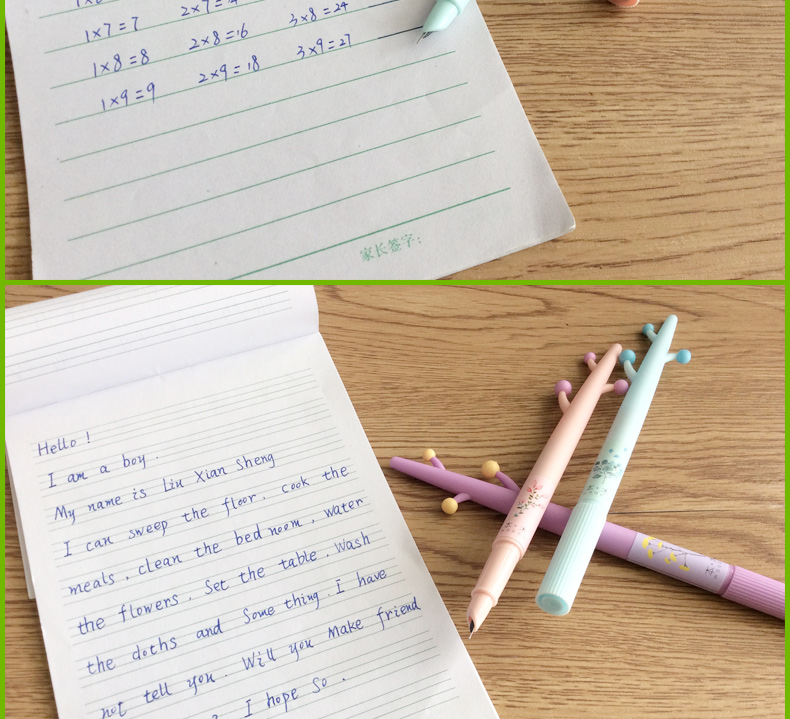 1×7=7 2×7=14 3×8=24
1×8=8 2×8=16 3×9=27
1×9=9 2×9=18
家长签字:
Hello !
I am a boy .
My name is Liu Xian Sheng
I can sweep the floor . Cook the
meals , clean the bed noom , water
the flowers . Set the table . Wash
the doths and Some thing . I have
not tell you . Will you Make friend
? I hope So .